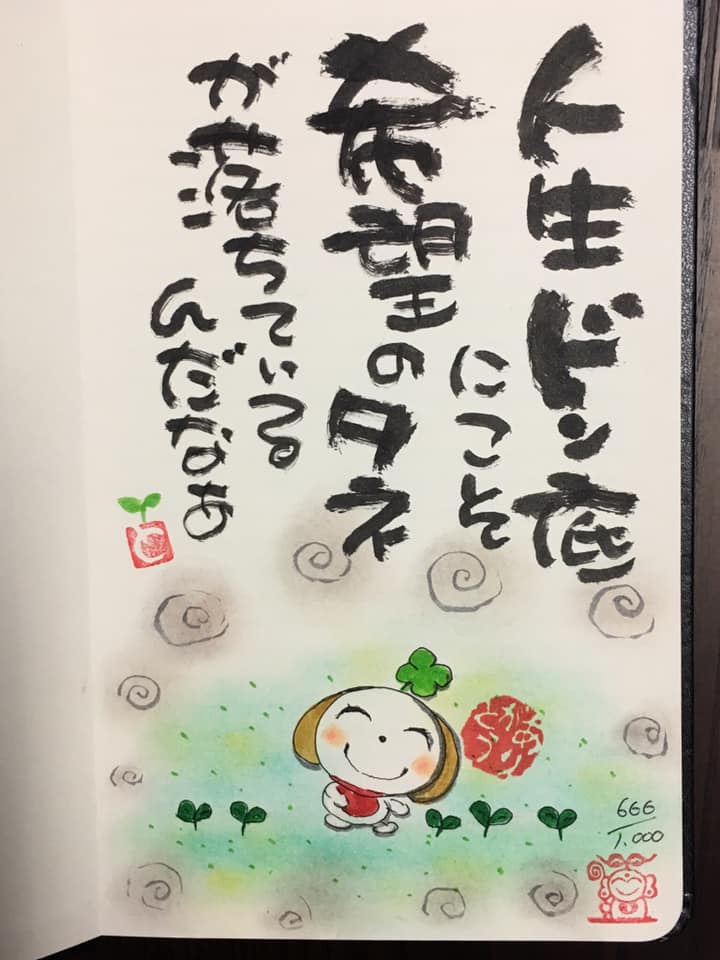 人生ドン底
にこそ
希望のタネ
が落ちている
んだなあ
666/1.000